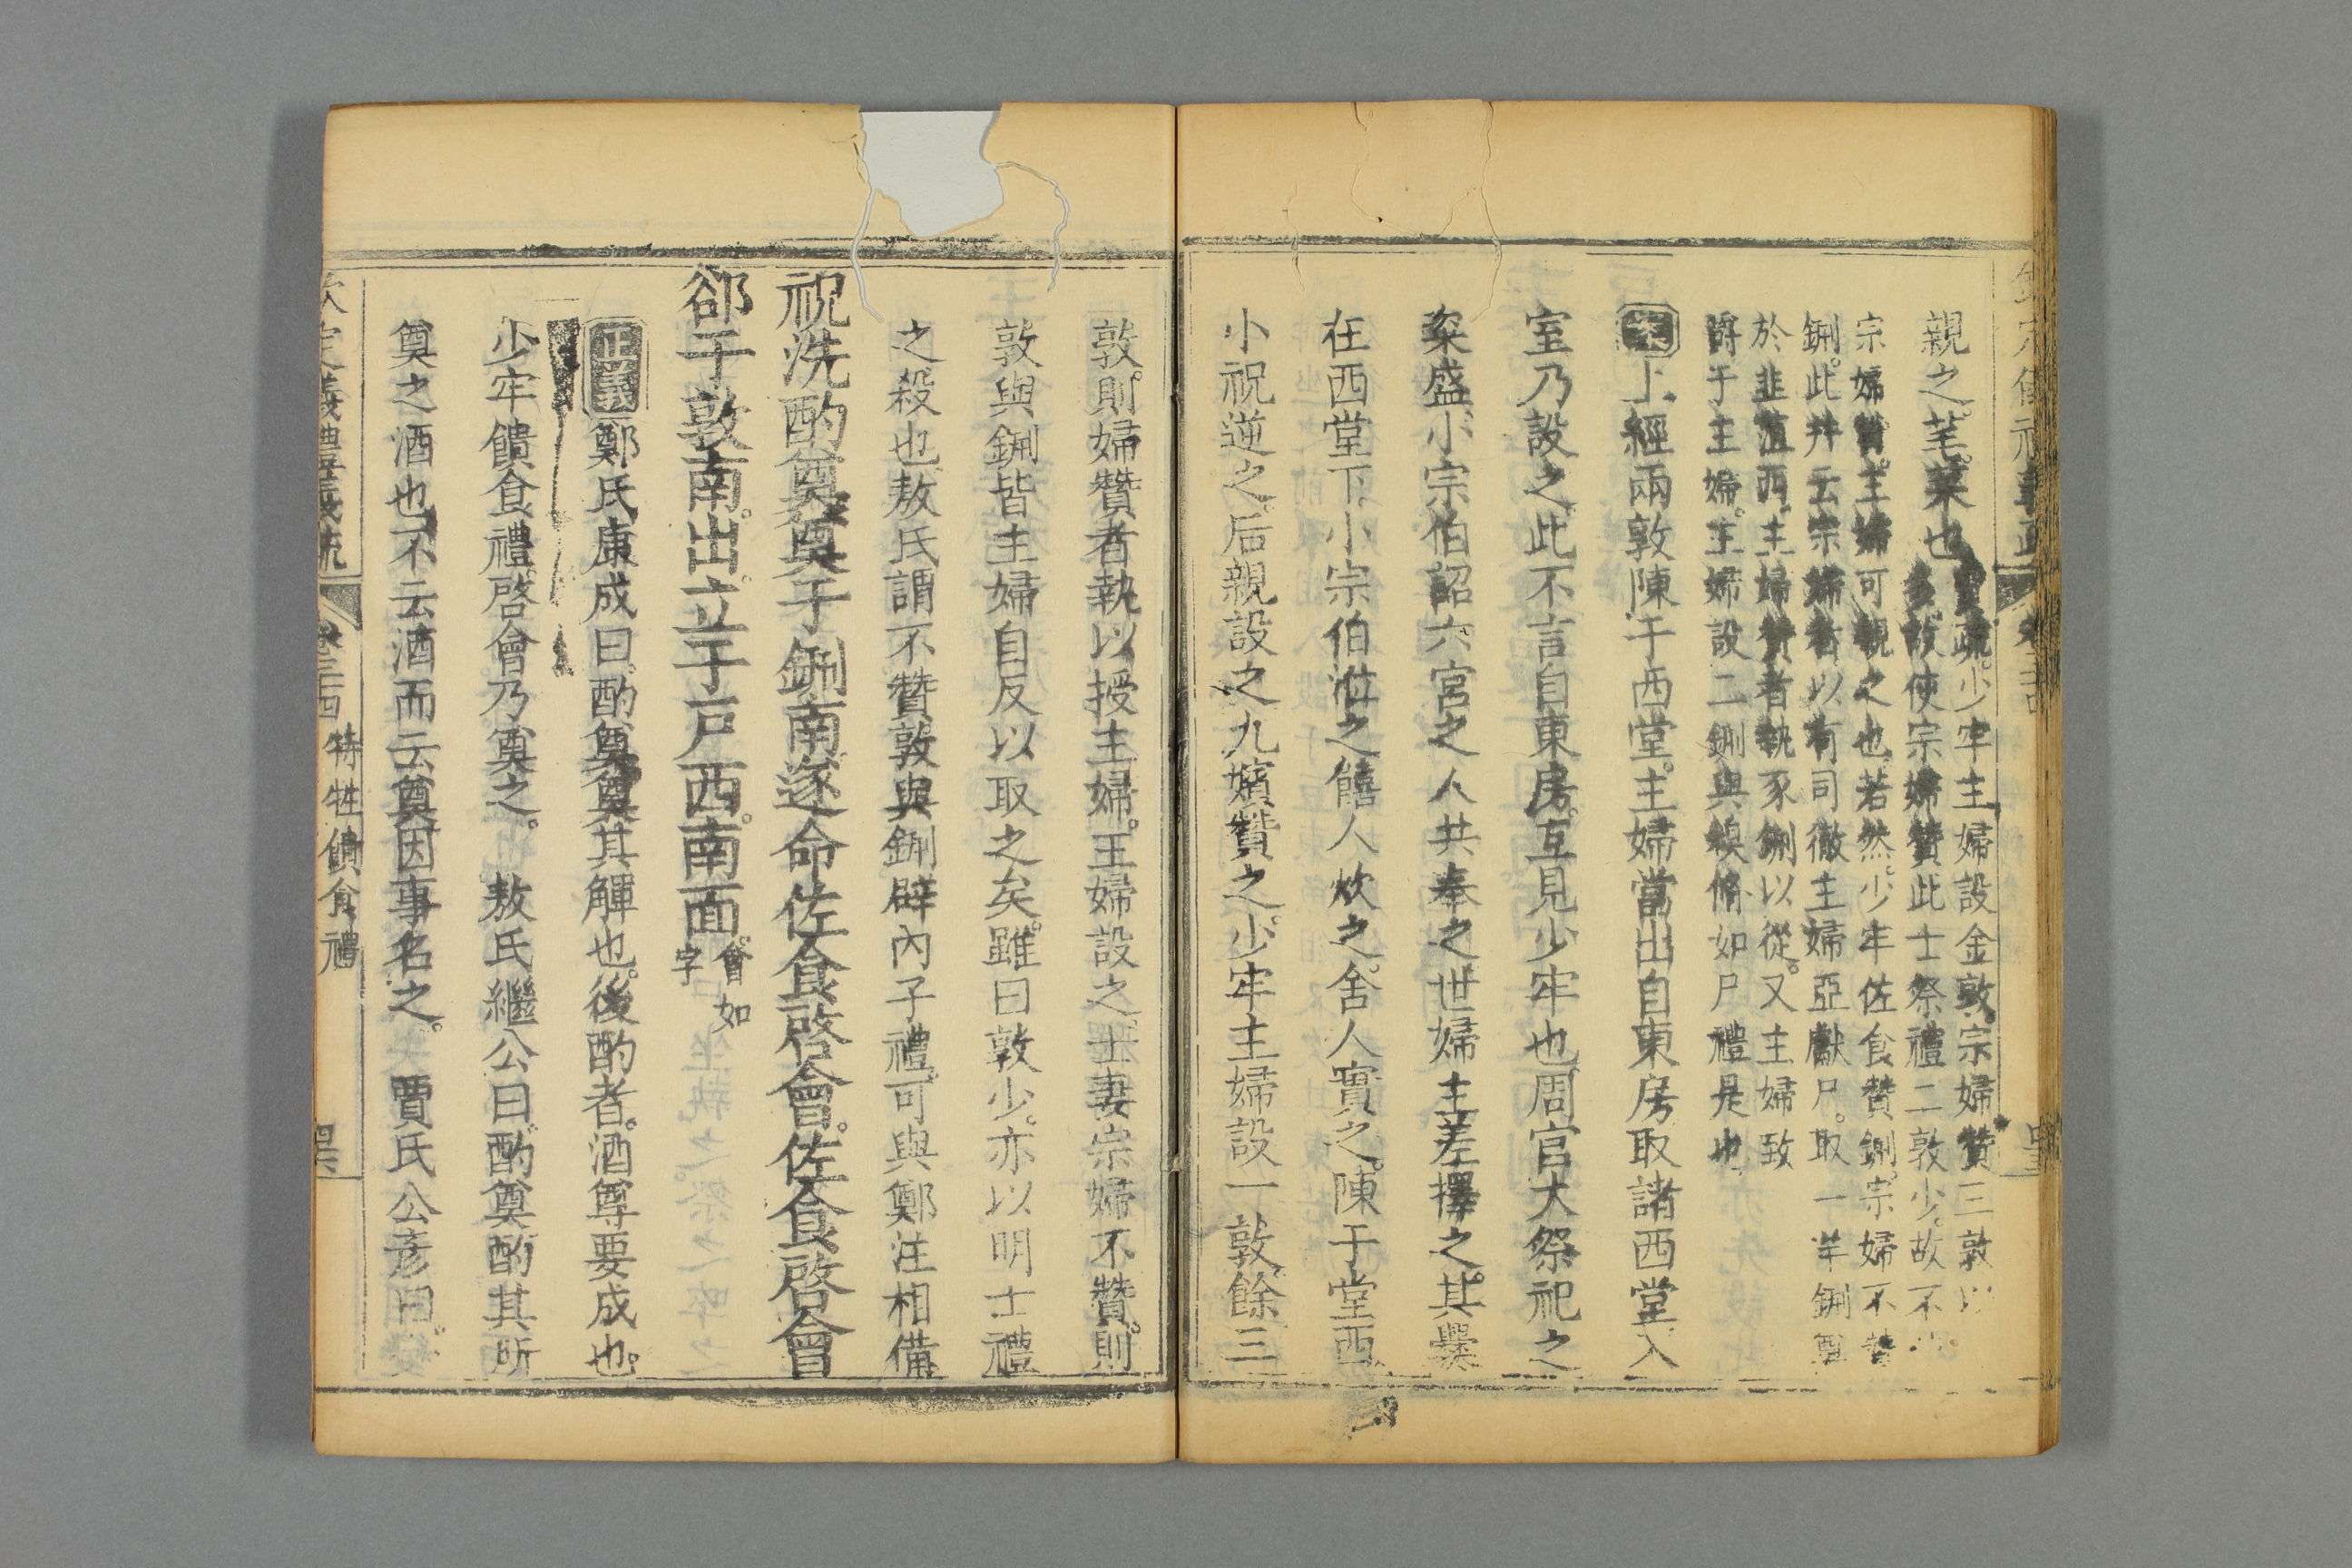 親之芼菜也
賈疏少牢主婦設金敦宗婦贊三敦以
多故使宗婦贊此士祭禮二敦少故不
宗婦贊主婦可親之也若然少牢佐食贊鉶宗婦不贊
鉶此幷云宗婦者以有司徹主婦亞獻尸取一羊鉶
於韭菹西主婦贊者執豕鉶以從又主婦致
爵于主婦主婦設二鉶與糗脩如尸禮是也
上經兩敦陳于西堂主婦當出自東房取諸西堂入
室乃設之此不言自東房互見少牢也周官大祭祀之
粢盛小宗伯詔六宮之人共奉之世婦主差擇之其爨
在西堂下小宗伯涖之饎人炊之舍人實之陳于堂西
小祝逆之后親設之九嬪贊之少牢主婦設一敦餘三
敦則婦贊者執以授主婦王婦設之士妻宗婦不贊則
敦與鉶皆主婦自反以取之矣雖曰敦少亦以明士禮
之殺也敖氏謂不贊敦與鉶辟內子禮可與鄭注相備
祝洗酌奠奠于鉶南遂命佐食啓會佐食啓會
郤于敦南出立于戶西南面會如字
正義鄭氏康成曰酌奠奠其觶也後酌者酒尊要成也
少牢饋食禮啓會乃奠之 敖氏繼公曰酌奠酌其所
奠之酒也不云酒而云奠因事名之 賈氏公彥曰
欽定義禮義疏 卷三四 特牲饋食禮